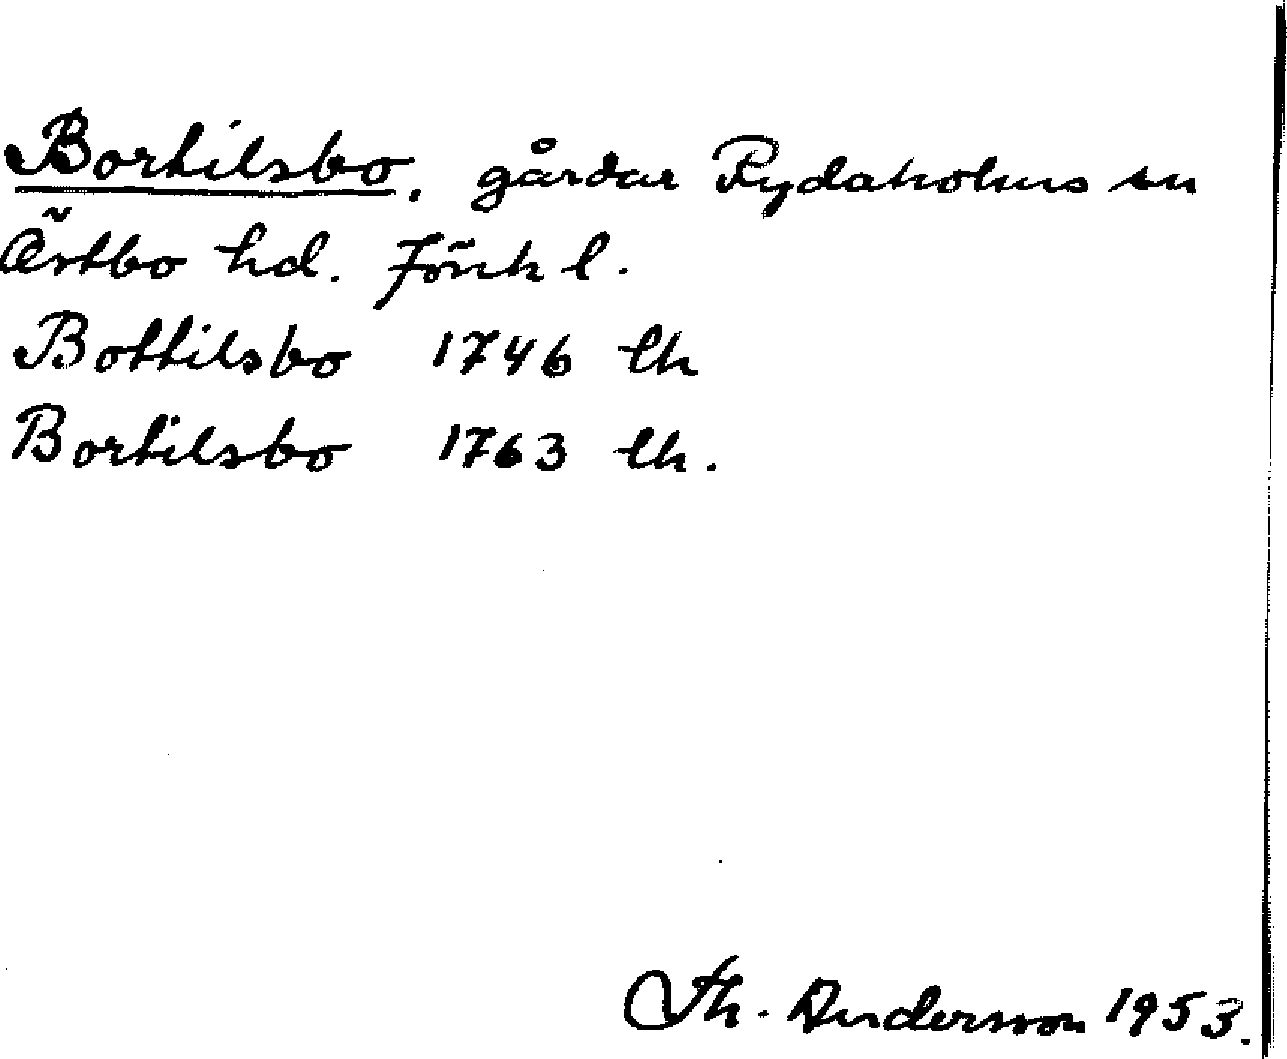 Bortilsbo, gårdar Rydaholms sn
Östbo hd. Jönk l.
Bottilsbo 1746 lh
Bortilsbo 1763 lh.
Th. Andersson 1953.